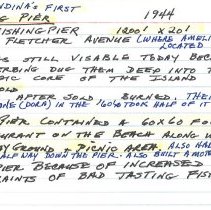 NDINA'S FIRST
G PIER 1944
FISHING PIER 1200' X 20'
FLETCHER AVENUE (WHERE AMELI
LOCATED
S STILL VISABLE TODAY BEC
RBING DUE THEM DEEP INTO T
PIC OF THE ISLAND
AFTER SOLD BURNED. THE
(DORA) IN THE 1960'S TOOK HALF OF IT
PIER CONTAINED A 60X60 FO
URANT ON THE BEACH ALONG W
YGROUND & PICNIC AREA. ALSO HAL
HALF WAY DOWN THE PIER. ALSO BUILT A MOTE
PIER BECAUSE OF INCREASED
AINTS OF BAD TASTING FISH